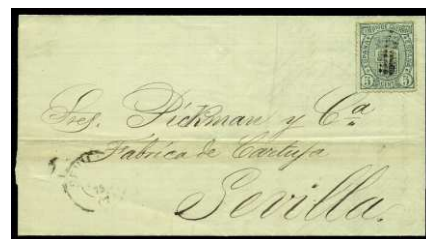 Sres. Pickman y Cª
Fábrica de Cartuja
Sevilla.
5 5